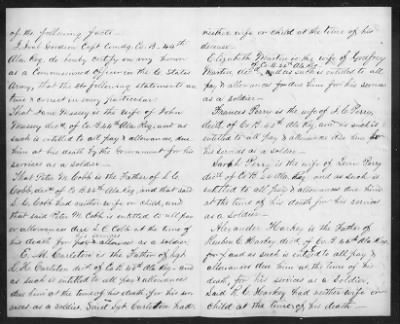 of the following facts.
I Jno. Goodwin Capt Comdg Co. B. 44th
Ala. Reg. do hereby certify on my honor
as a Commissioned Officer in the C. States
Army, that the following statements are
true & correct in every particular.
That Jane Massey is the wife of John
Massey decd. of Co. B 44th Ala. Reg. and as
such is entitled to all pay & allowances due
him at his death by the Government for his
services as a soldier.
That Peter M. Cobb is the Father of L. C.
Cobb, decd. of Co. B. 44th Ala. Reg. and that said
L. C. Cobb had neither wife or child, and
that said Peter M. Cobb is entitled to all pay
or allowances due L. C. Cobb at the time of
his death for his services as a soldier
pay & allowances
E. M. Carleton is the Father of Sgt.
Carleton decd. of Co. B 44th Ala. Reg. and
as such is entitled to all pay & allowances
due him at the time of his death, for his ser-
vices as a soldier. Said Sgt. Carleton had
neither wife or child at the time of his
decease.
Elizabeth Martin is the wife of Godfrey
Martin, decd. of Co. B. 44th Ala. Reg. and as such is entitled to all
pay & allowances due him for his services
as a soldier.
Frances Perry is the wife of J. C. Perry,
decd. of Co. B. 44th Ala. Reg. and as such is
entitled to all pay & allowances due him for
his services as a soldier.
Sarah Perry is the wife of Perry
decd. of Co. B. 44 Ala Reg. and as such is
entitled to all pay & allowances due him
at the time of his death for his services
as a Soldier.
Alexander Harkey is the Father of
Reuben C. Harkey decd. of Co. B 44th Ala Reg.
and as such is entitled to all pay &
allowances due him at the time of his
death, for his services as a Soldier.
Said R. C. Harkey had neither wife or
child at the time of his death.